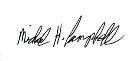 Michael H. Campbell